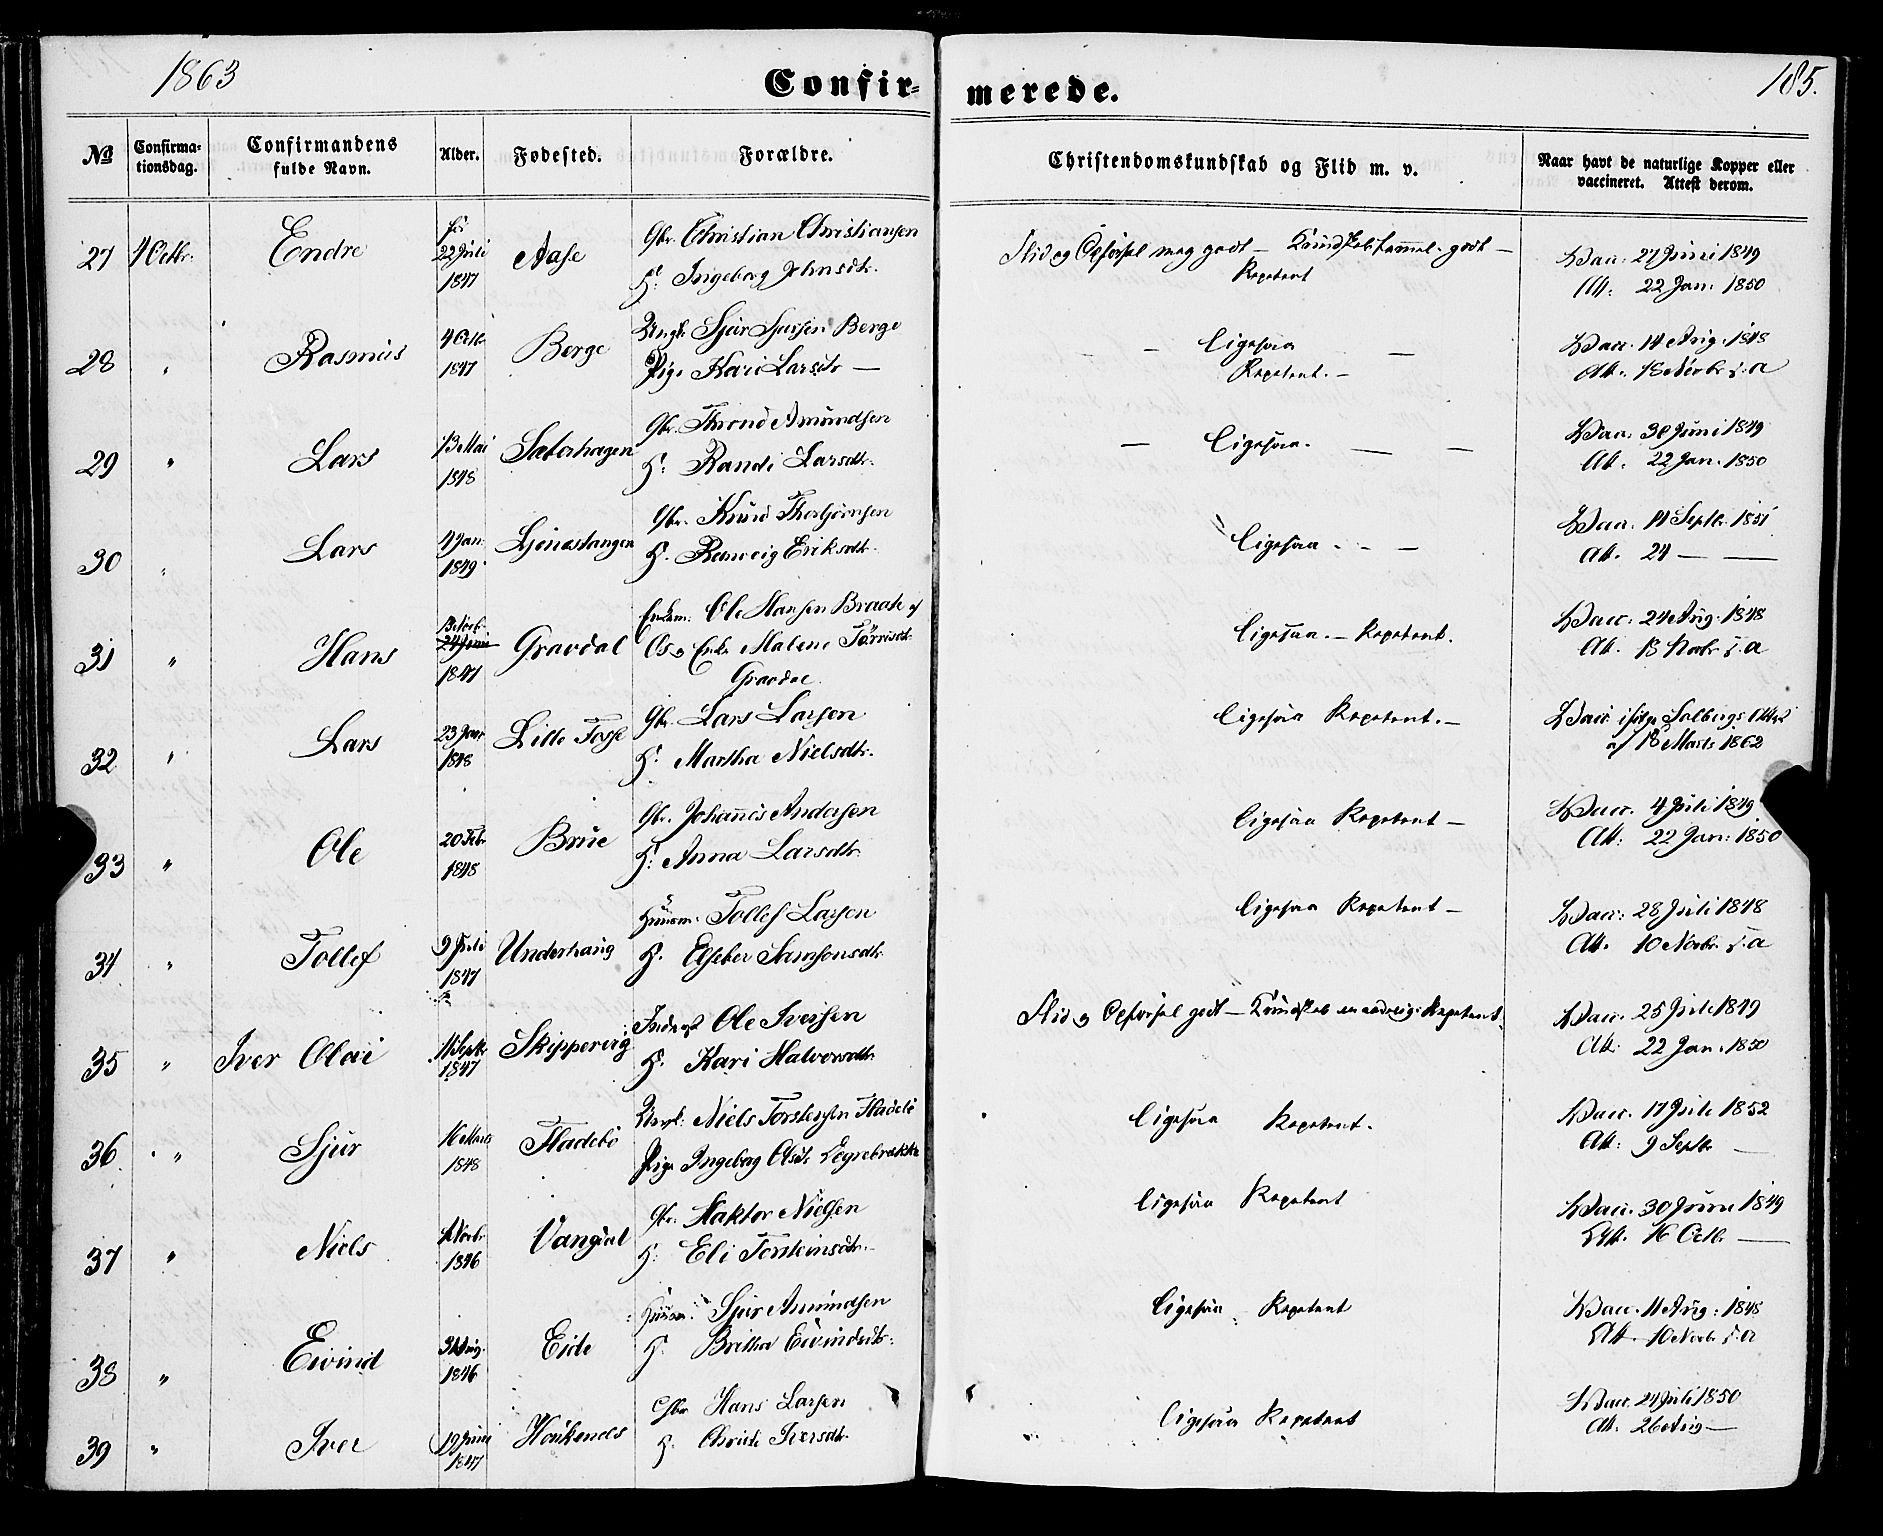 1863
Confir-
merede.
185.
No
Confirma-
tionsdag.
Confirmandens
fulde Navn.
Alder.
Fødested.
Forældre.
Christendomskundskab og Flid m. v.
Naar havt de naturlige Kopper eller
vaccineret. Attest derom.
27 4 Octbr. Endre 22 Juli 1847 Aase
Gbr. Christian Christiansen
H: Ingeborg Johnsdtr.
Flid og Opførsel meg godt – Kundskab temmel. godt –
Repetent
Vacc: 27 Juni 1849
Att: 22 Jan: 1850
28 " Rasmus 4 Octb 1847 Berge
Ungk. Sjur Sjursen Berge
Pige Kari Larsdtr –
– – Ligesaa –
Repetent. –
Vacc. 14 Aug. 1848
Att. 18 Novbr s. a
29 " Lars 13 Mai 1848 Sæterhagen
Gbr. Thrond Amundsen
H: Randi Larsdtr.
– Ligesaa. – –
Vacc. 30 Juni 1849
Att. 22 Jan. 1850
30 " Lars 4 Jan. 1849
Gbr. Knud
H. Eriksdtr.
Ligesaa. – –
Vacc. 14 Septbr. 1851
Att. 24 – –
31 " Hans 24 Juni 1847 Gravdal
Enkem: Ole Hansen Braate af
Os og Enke Malene
Gravdal.
Ligesaa. – Repetent.
Vacc. 24 Aug. 1848
Att. 18 Novbr s. a
32 " Lars 23 Janr 1848 Lille Fosse
Gbr. Lars Larsen
H: Martha Nielsdtr.
Ligesaa Repetent. –
Vacc. ifølge Solbergs Attest
af 18 Marts 1862
33 " Ole 20 Febr 1848 Brue
Gbr. Johannes Andersen
H: Anna Larsdtr.
Ligesaa Repetent –
Vacc. 4 Juli 1849
Att: 22 Jan: 1850
34 " Tollef 9 Juli 1847 Underhaug
Huusm. Tollef Larsen
H. Elseber Samsonsdtr.
Ligesaa Repetent –
Vacc: 28 Juli 1848
Att. 10 Novbr. s. a
35 " Iver Olai 11 Septbr 1847 Skippervig
Inderst Ole Iversen
H: Kari Halvorsdtr.
Flid og Opførsel godt – Kundskab maadelig. Repetent.
Vacc. 25 Juli 1849
Att: 22 Jan. 1850
36. " Sjur 16 Marts 1848 Fladebø
Ungk: Niels Torstensen Fladebø
Pige Ingeborg Olsdtr Legrebrekke
Ligesaa Repetent.
Vacc. 17 Juli 1852
Att: 9 Septbr –
37 " Niels Novbr 1846 Vangdal
Gbr: Haktor Nielsen
H: Eli Torsteinsdtr. –
Ligesaa Repetent
Vacc. 30 Juni 1849
Att. 16 Octbr. –
38 " Eivind Aug. 1846 Eide
Huusm. Sjur Amundsen
H. Britha Eivindsdtr.
Ligesaa Repetent
Vacc. 11 Aug: 1848
Att. 10 Novbr. s. a
39 " Iver 19 Juni 1847 Haukenæs
Gbr Hans Larsen
H. Christi Iversdtr.
Ligesaa Repetent
Vacc. 24 Juli 1850
Att: 26 Aug –